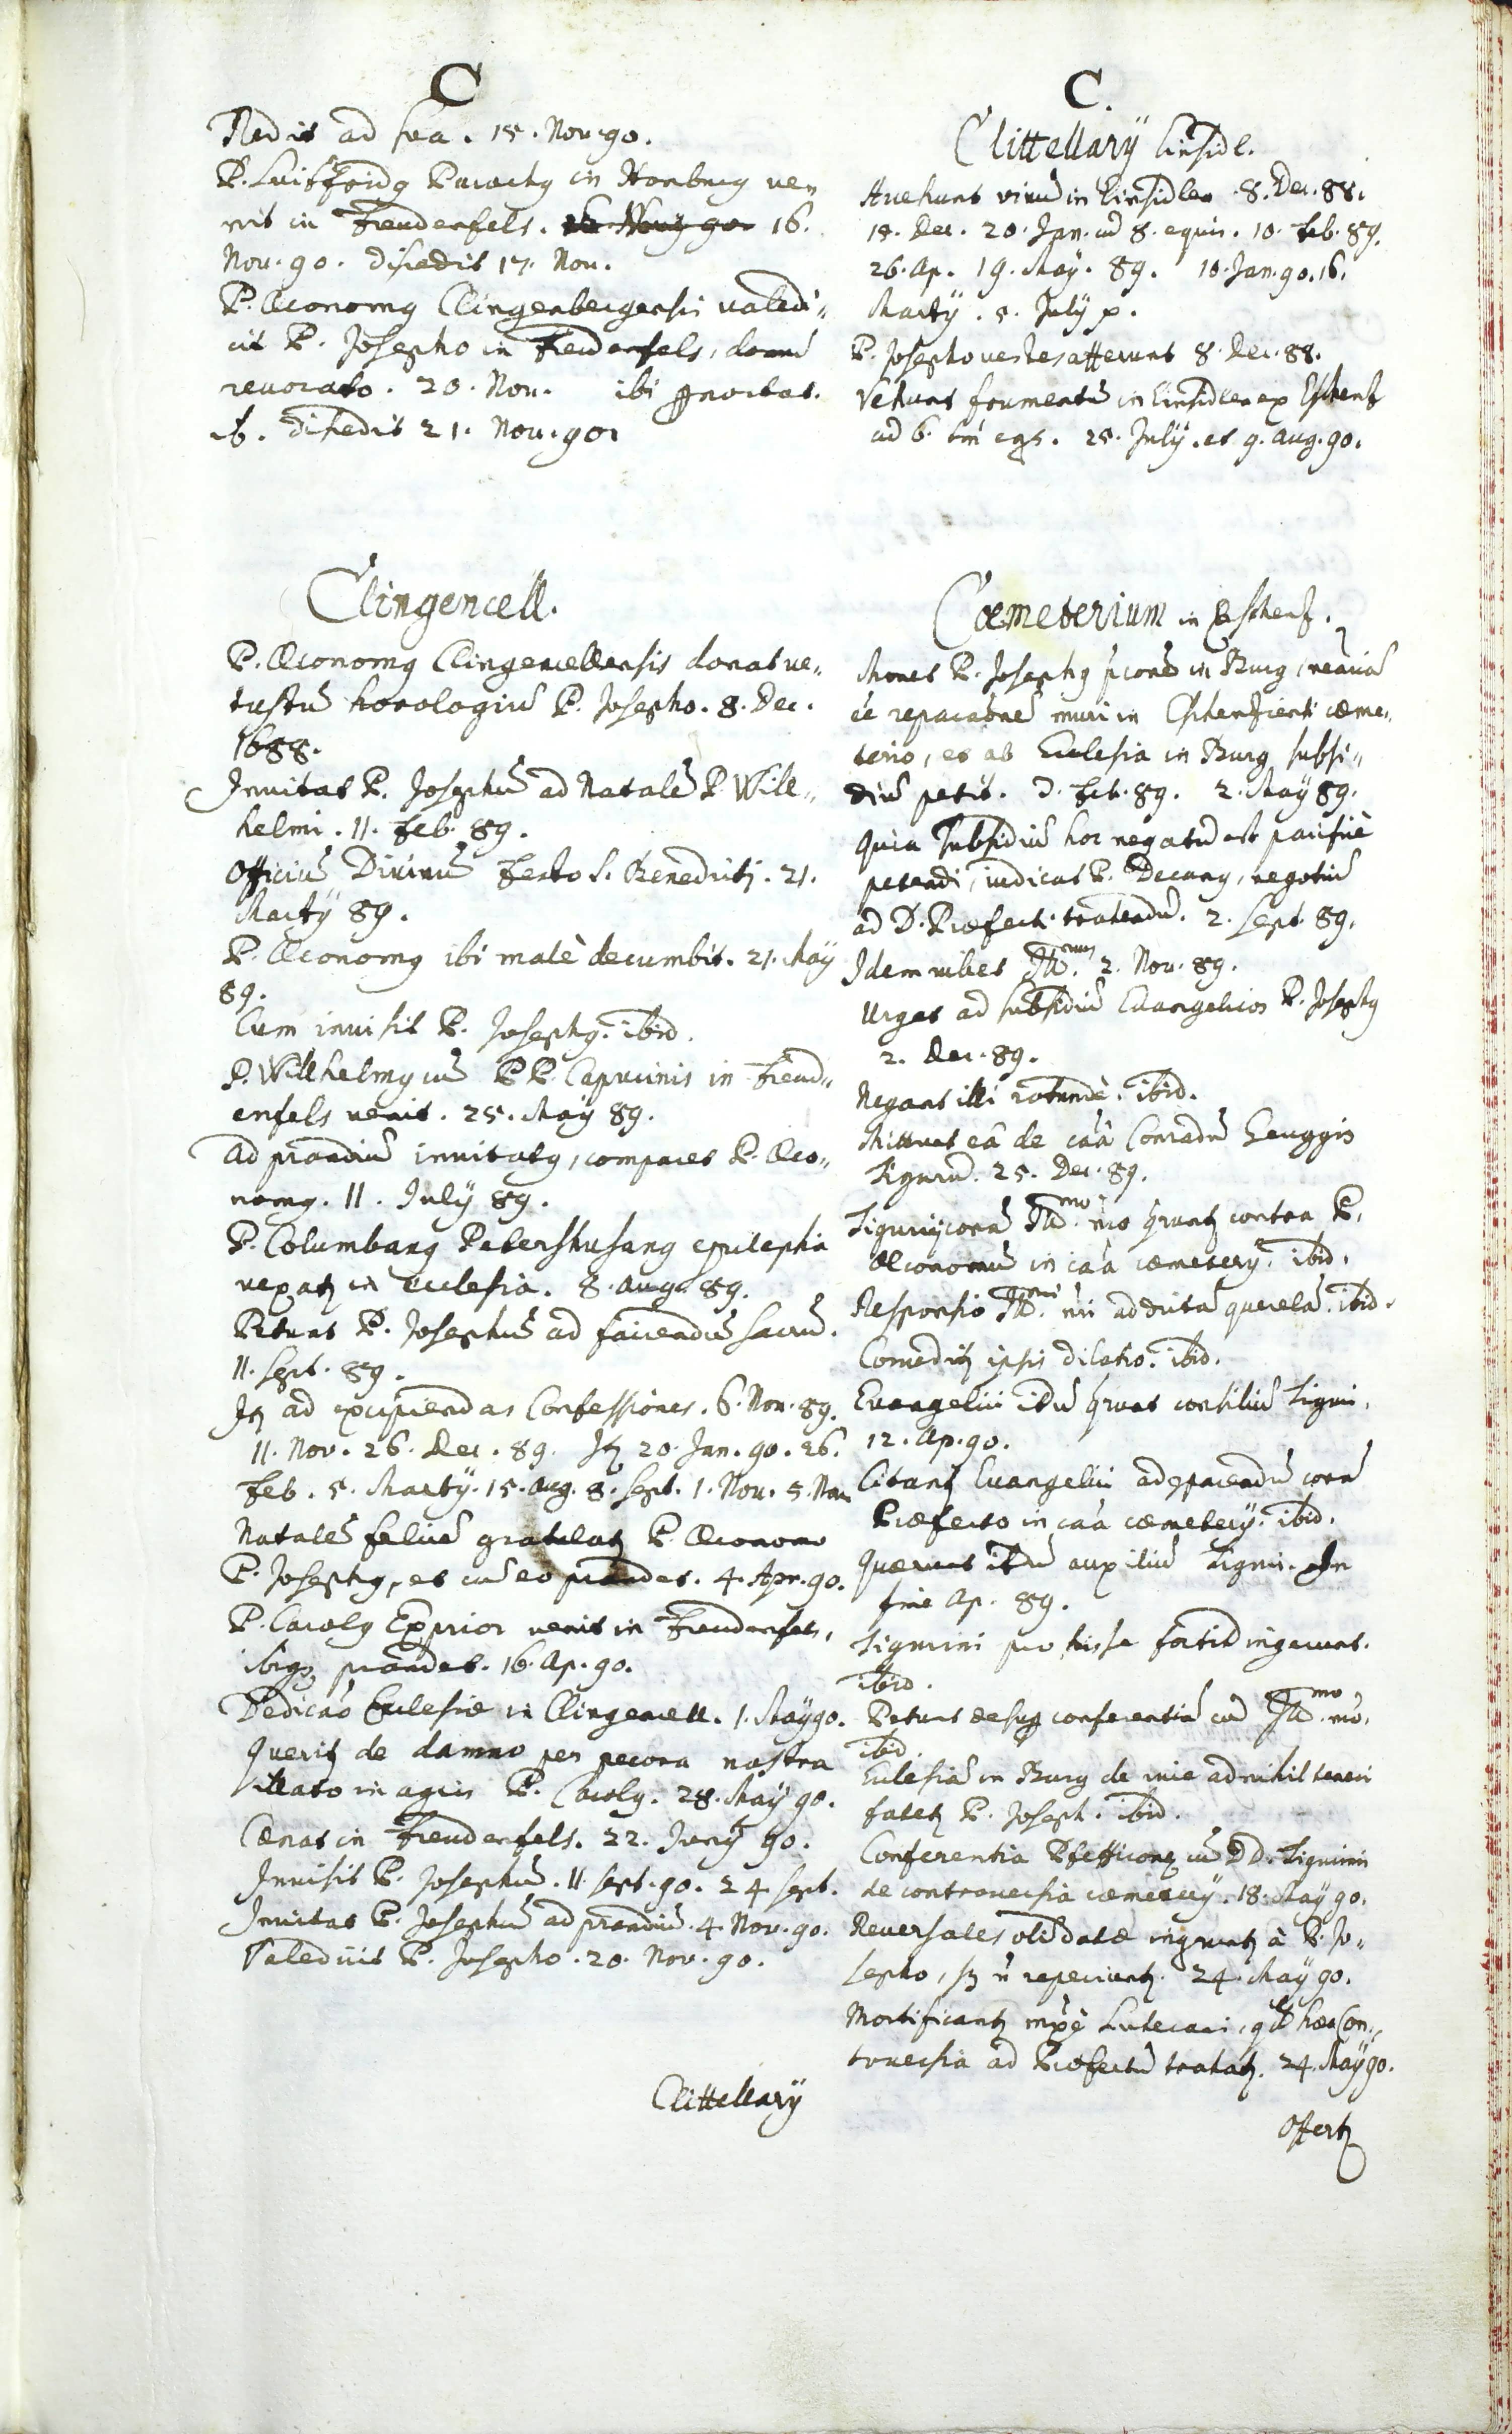 C
Redit ad sua. 15. Nov. 90.
P. Luitfrid9 Paroch9 in Homburg ve„
nit in Freudenfels. 16.
Nov. 90. discedit 17. Nov.
P. Œconom9 Clingenbergensis valedi„
cit P. Josepho in Freudenfels, domũ
revocato. 20. Nov. ibi pnoctat.
ib. discedit 21. Nov. 90.
Clingencell.
P. Œconom9 Clingencellensis donat ve„
tustũ horologiũ P. Josepho. 8. Dec.
1688.
Invitat P. Josephũ ad Natalẽ P. Will„
helmi. 11. Feb. 89.
Officiũ Divinũ Festo S. Benedicti. 21.
Martÿ 89.
P. Œconom9 ibi malè decumbit. 21. Maÿ
89.
Eum invisit P. Joseph9. ibid.
P. Willhelm9 cũ PP. Capucinis in Freud„
enfels venit. 25. Maÿ 89.
Ad prandiũ invitat9, comparet P. Œco„
nom9. 11. Julÿ 89.
P. Columban9 Petershusan9 epilepsia
vexat in ecclesia. 8. Aug. 89.
Petunt P. Josephũ ad faciendũ sacrũ.
11. Sept. 89.
It ad excipiendas Confessiones. 6. Nov. 89.
11. Nov. 26. Dec. 89. It 20. Jan. 90. 26.
Feb. 5. Martÿ. 15. Aug. 8. Sept. 1. Nov. 5. Nov
Natalẽ felicẽ gratulat P. Œconomo
P. Joseph9, et cũ eo prandet. 4. Apr. 90.
P. Carol9 Exprior venit in Freudenfels,
ibiq3 prandet. 16. Ap. 90.
Dedicaõ Ecclesiæ in Clingencell. 1. Maÿ 90.
Querit de damno per pecora nostra
illato in agris P. Carol9. 28. Maÿ 90.
Cænat in Freudenfels. 22. Junÿ 90.
Invisit P. Josephũ. 11 Sept. 90. 24 Sept.
Invitat P. Josephũ ad prandiũ. 4. Nov. 90.
Valedicit P. Josepho. 20. Nov. 90.
Clittellarÿ
C.
Clittellarÿ Einsidl.
Avehunt vinũ in Einsidlen. 8. Dec. 88.
18. Dec. 20. Jan. cũ 8. equis. 10. Feb. 89.
26. Ap. 19. Maÿ. 89. 10. Jan. 90. 16.
Martÿ. 5. Julÿ
P. Josepho vestes afferunt 8. Dec. 88.
Vehunt frumentũ in Einsidlen ex Eschenz
25. Julÿ. et 9. Aug. 90.
Cœmeterium in Eschenz.
Monet P. Joseph9 in Burg, neariã
ẽe reparaõnẽ muri in Eschenzensi cæme„
terio, et ab Ecclesia in Burg subsi„
diũ petit. 2. Feb. 89. 2. Maÿ 89.
Quia subsidiũ hoc negatũ est pacificè
petendi, iudicat P. Decan9, negotiũ
ad D. Præfect. trahendũ. 2. Sept. 89.
Idem iubet Illmus. 2. Nov. 89.
Urget ad subsidiũ Evangelicos P. Joseph9
2. Dec. 89.
Negant illi rotundè. ibid.
Mittunt eâ de caâ Conradũ Leuggis
Tigurũ. 25. Dec. 89.
Tigurij corã Illmo. nrõ qrunt contra P.
Œconomũ in caâ cæmeterÿ. ibid.
Responsio Illmi. nri ad dictã querelã. ibid.
Comedit ipsis dilatio. ibid.
Evangelici itũ qrunt consiliũ Tiguri,
12. Ap. 90.
Citant Evangelici ad parendũ corã
Præfecto in caâ cæmeterÿ. ibid.
Quærunt itũ auxiliũ Tiguri. In
fine Ap. 89.
Tigurini pro hisse ingerunt.
ibid.
Petunt desup conferentiã cũ Illmo. nrõ.
ibid.
Ecclesiã in Burg de iure ad nihil teneri
fatet P. Joseph. ibid.
Conferentia cũ DD. Tigurinis
de controversia cæmeterÿ. 18. Maÿ 90.
Reversales olim datæ inqrunt à P. Jo„
sepho, sz ñ reperiunt. 24. Maÿ 90.
Mortificant Luterani, qd hæc Con„
troversia ad Præfectũ trahat. 24. Maÿ 90.
Offert